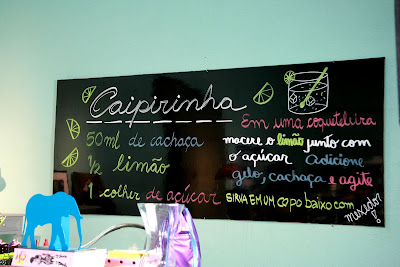 Caipirinha
50ml de cachaça
½ limão
1 colher de açúcar
Em uma coqueteleira
macere o limão junto com
o açúcar Adicione
gelo, cachaça e agite
SIRVA EM UM copo baixo com
mexedor!